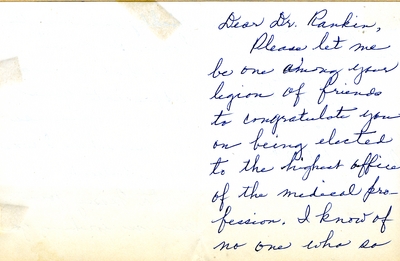 Dear Dr. Rankin,
Please let me
be one among your
legion of friends
to congratulate you
on being elected
to the highest office
of the medical pro-
fession. I know of
no one who so